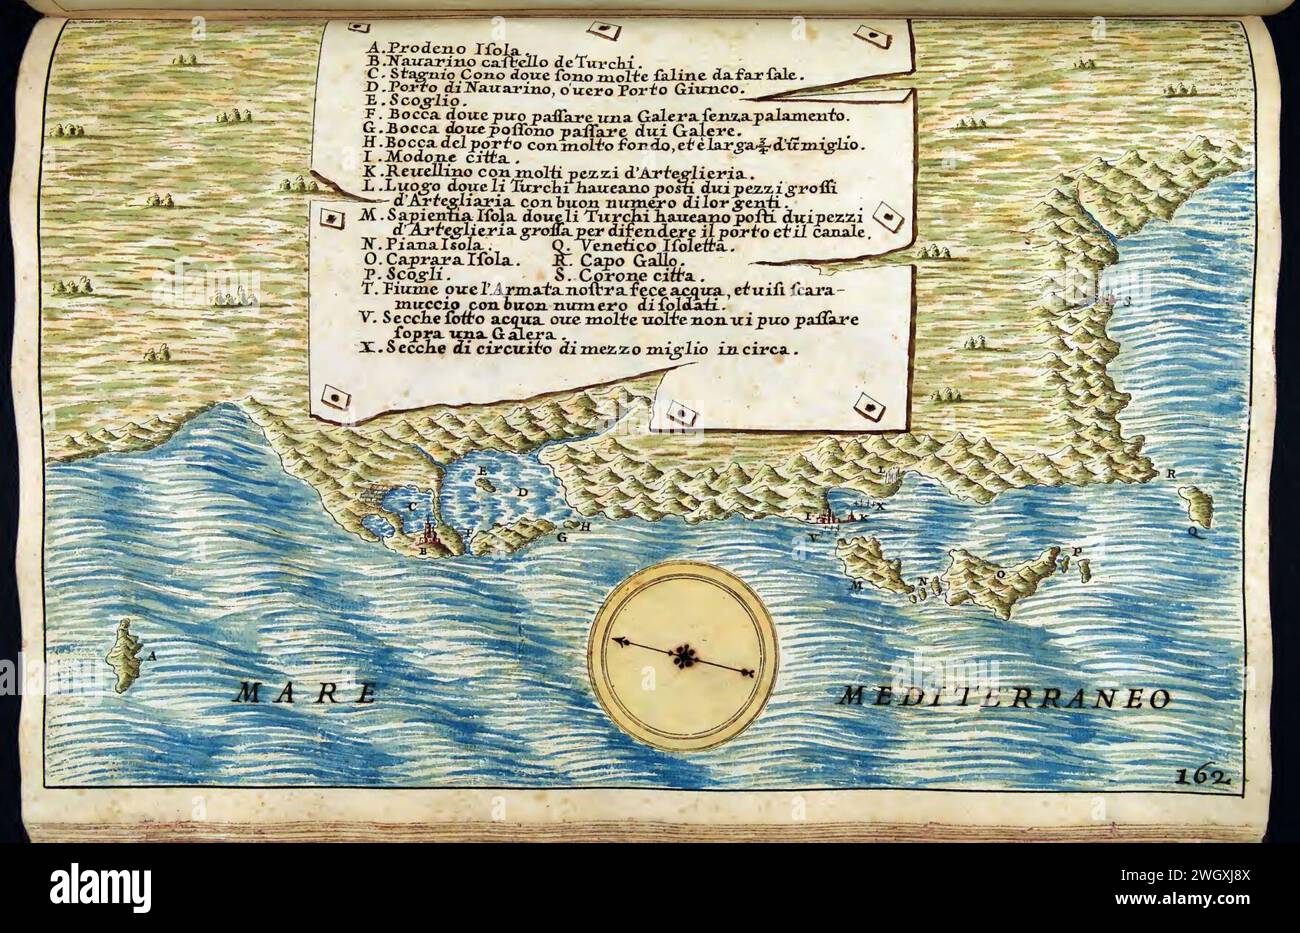 A. Prodeno Iſola.
B. Nauarino caſtello de Turchi.
C. Stagnio Cono doue ſono molte ſaline da far ſale.
D. Porto di Nauarino, o'uero Porto Giunco.
E. Scoglio.
F. Bocca doue puo paſſare una Galera ſenza palamento.
G. Bocca doue poſſono paſſare dui Galere.
H. Bocca del porto con molto fondo, et è larga ¾ d'ũ miglio.
I. Modone citta.
K. Reuellino con molti pezzi d'Arteglieria.
L. Luogo doue li Turchi haueano poſti dui pezzi groſſi
d'Artegliaria con buon numero di lor genti.
M. Sapientia Iſola doue li Turchi haueano poſti dui pezzi
d'Arteglieria groſſa per difendere il porto et il canale.
N. Piana Iſola. Q. Venetico Iſoletta.
O. Caprara Iſola. R. Capo Gallo.
P. Scogli. S. Corone citta.
T. Fiume oue l'Armata noſtra fece acqua, et uiſi ſcara-
muccio con buon numero di ſoldati.
V. Secche ſotto acqua oue molte uolte non ui puo paſſare
ſopra una Galera.
X. Secche di circuito di mezzo miglio in circa.
S
L
R
E
D
C
X
I
K
Q
F
H
G
V
B
P
O
N
M
A
MARE MEDITERRANEO
162
alamy
Image ID: 2WGXJ8X
www.alamy.com